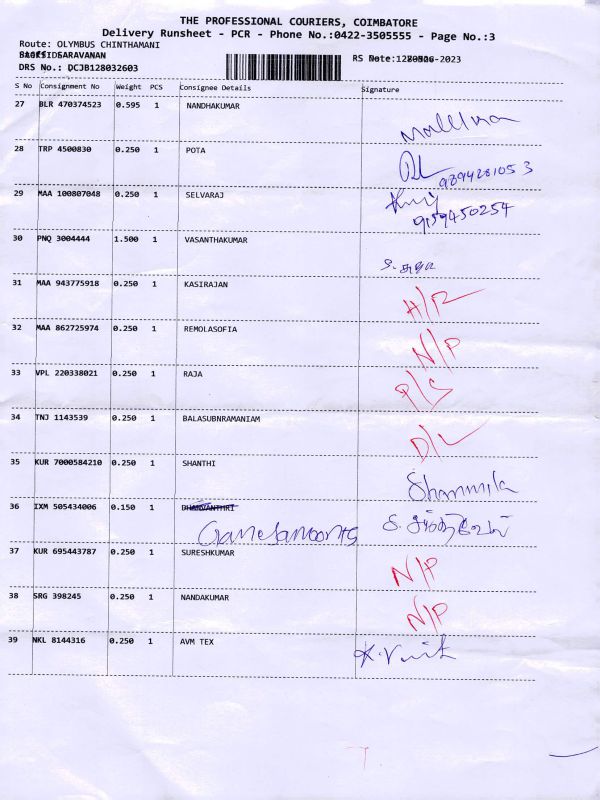 THE PROFESSIONAL COURIERS, COIMBATORE
Delivery Runsheet - PCR - Phone No.:0422-3505555 - Page No.:3
Route: OLYMBUS CHINTHAMANI
SARAVANAN
DRS No.: DCJB128032603
S No Consignment No Weight PCS Consignee Details Signature
27 BLR 470374523 0.595 1 NANDHAKUMAR
28 TRP 4500830 0.250 1 POTA
9894281053
29 MAA 100807048 0.250 1 SELVARAJ
9159450254
30 PNQ 3004444 1.500 1 VASANTHAKUMAR
31 MAA 943775918 0.250 1 KASIRAJAN
32 MAA 862725974 0.250 1 REMOLASOFIA N/P
33 VPL 220338021 0.250 1 RAJA
34 TNJ 1143539 0.250 1 BALASUBNRAMANIAM D/L
35 KUR 7000584210 0.250 1 SHANTHI
36 IXM 505434006 0.150 1
37 KUR 695443787 0.250 1 SURESHKUMAR N/P
38 SRG 398245 0.250 1 NANDAKUMAR N/P
39 NKL 8144316 0.250 1 AVM TEX